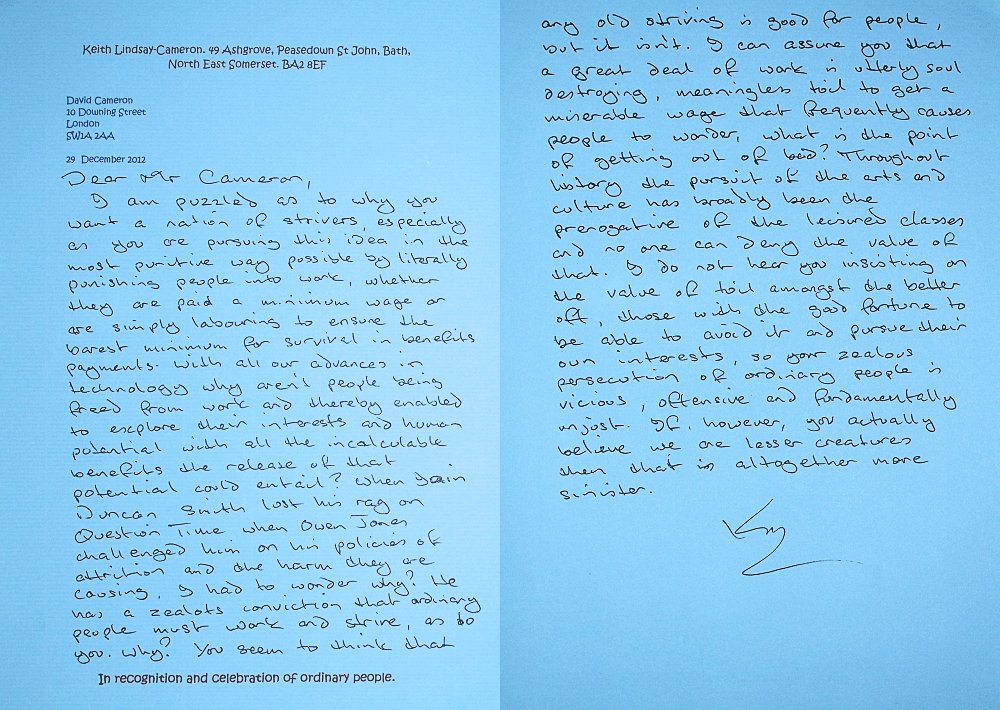 Keith Lindsay-Cameron. 49 Ashgrove, Peasedown St John, Bath,
North East Somerset. BA2 8EF
David Cameron
10 Downing Street
London
SW1A 2AA
29 December 2012
Dear Mr Cameron,
I am puzzled as to why you
want a nation of strivers, especially
as you are pursuing this idea in the
most punitive way possible by literally
punishing people into work, whether
they are paid a minimum wage or
are simply labouring to ensure the
barest minimum for survival in benefits
payments. With all our advances in
technology why aren't people being
freed from work and thereby enabled
to explore their interests and human
potential with all the incalculable
benefits the release of that
potential could entail? When Iain
Duncan Smith lost his rag on
Question Time when Owen Jones
challenged him on his policies of
attrition and the harm they are
causing, I had to wonder why? He
has a zealots conviction that ordinary
people must work and strive, as do
you. Why? You seem to think that
In recognition and celebration of ordinary people.
any old striving is good for people,
but it isn't. I can assure you that
a great deal of work is utterly soul
destroying, meaningless toil to get a
miserable wage that frequently causes
people to wonder, what is the point
of getting out of bed? Throughout
history the pursuit of the arts and
culture has broadly been the
prerogative of the leisured classes
and no one can deny the value of
that. I do not hear you insisting on
the value of toil amongst the better
off, those with the good fortune to
be able to avoid it and pursue their
own interests, so your zealous
persecution of ordinary people is
vicious, offensive and fundamentally
unjust. If, however, you actually
believe we are lesser creatures
then that is altogether more
sinister.